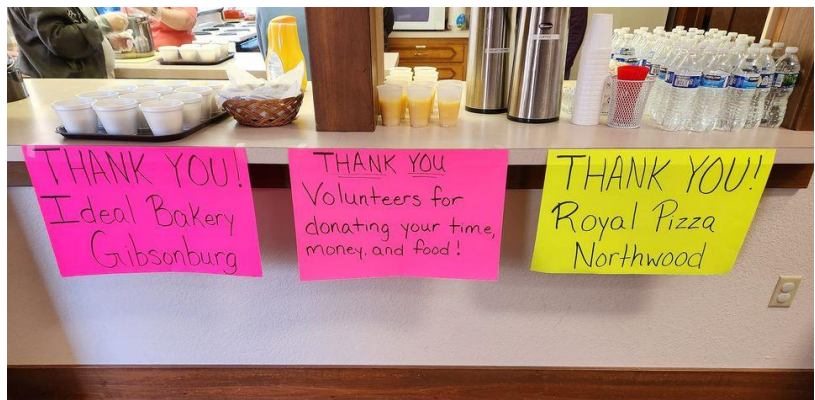 THANK YOU!
Ideal Bakery
Gibsonburg
THANK YOU
Volunteers for
donating your time,
money, and food!
THANK YOU!
Royal Pizza
Northwood